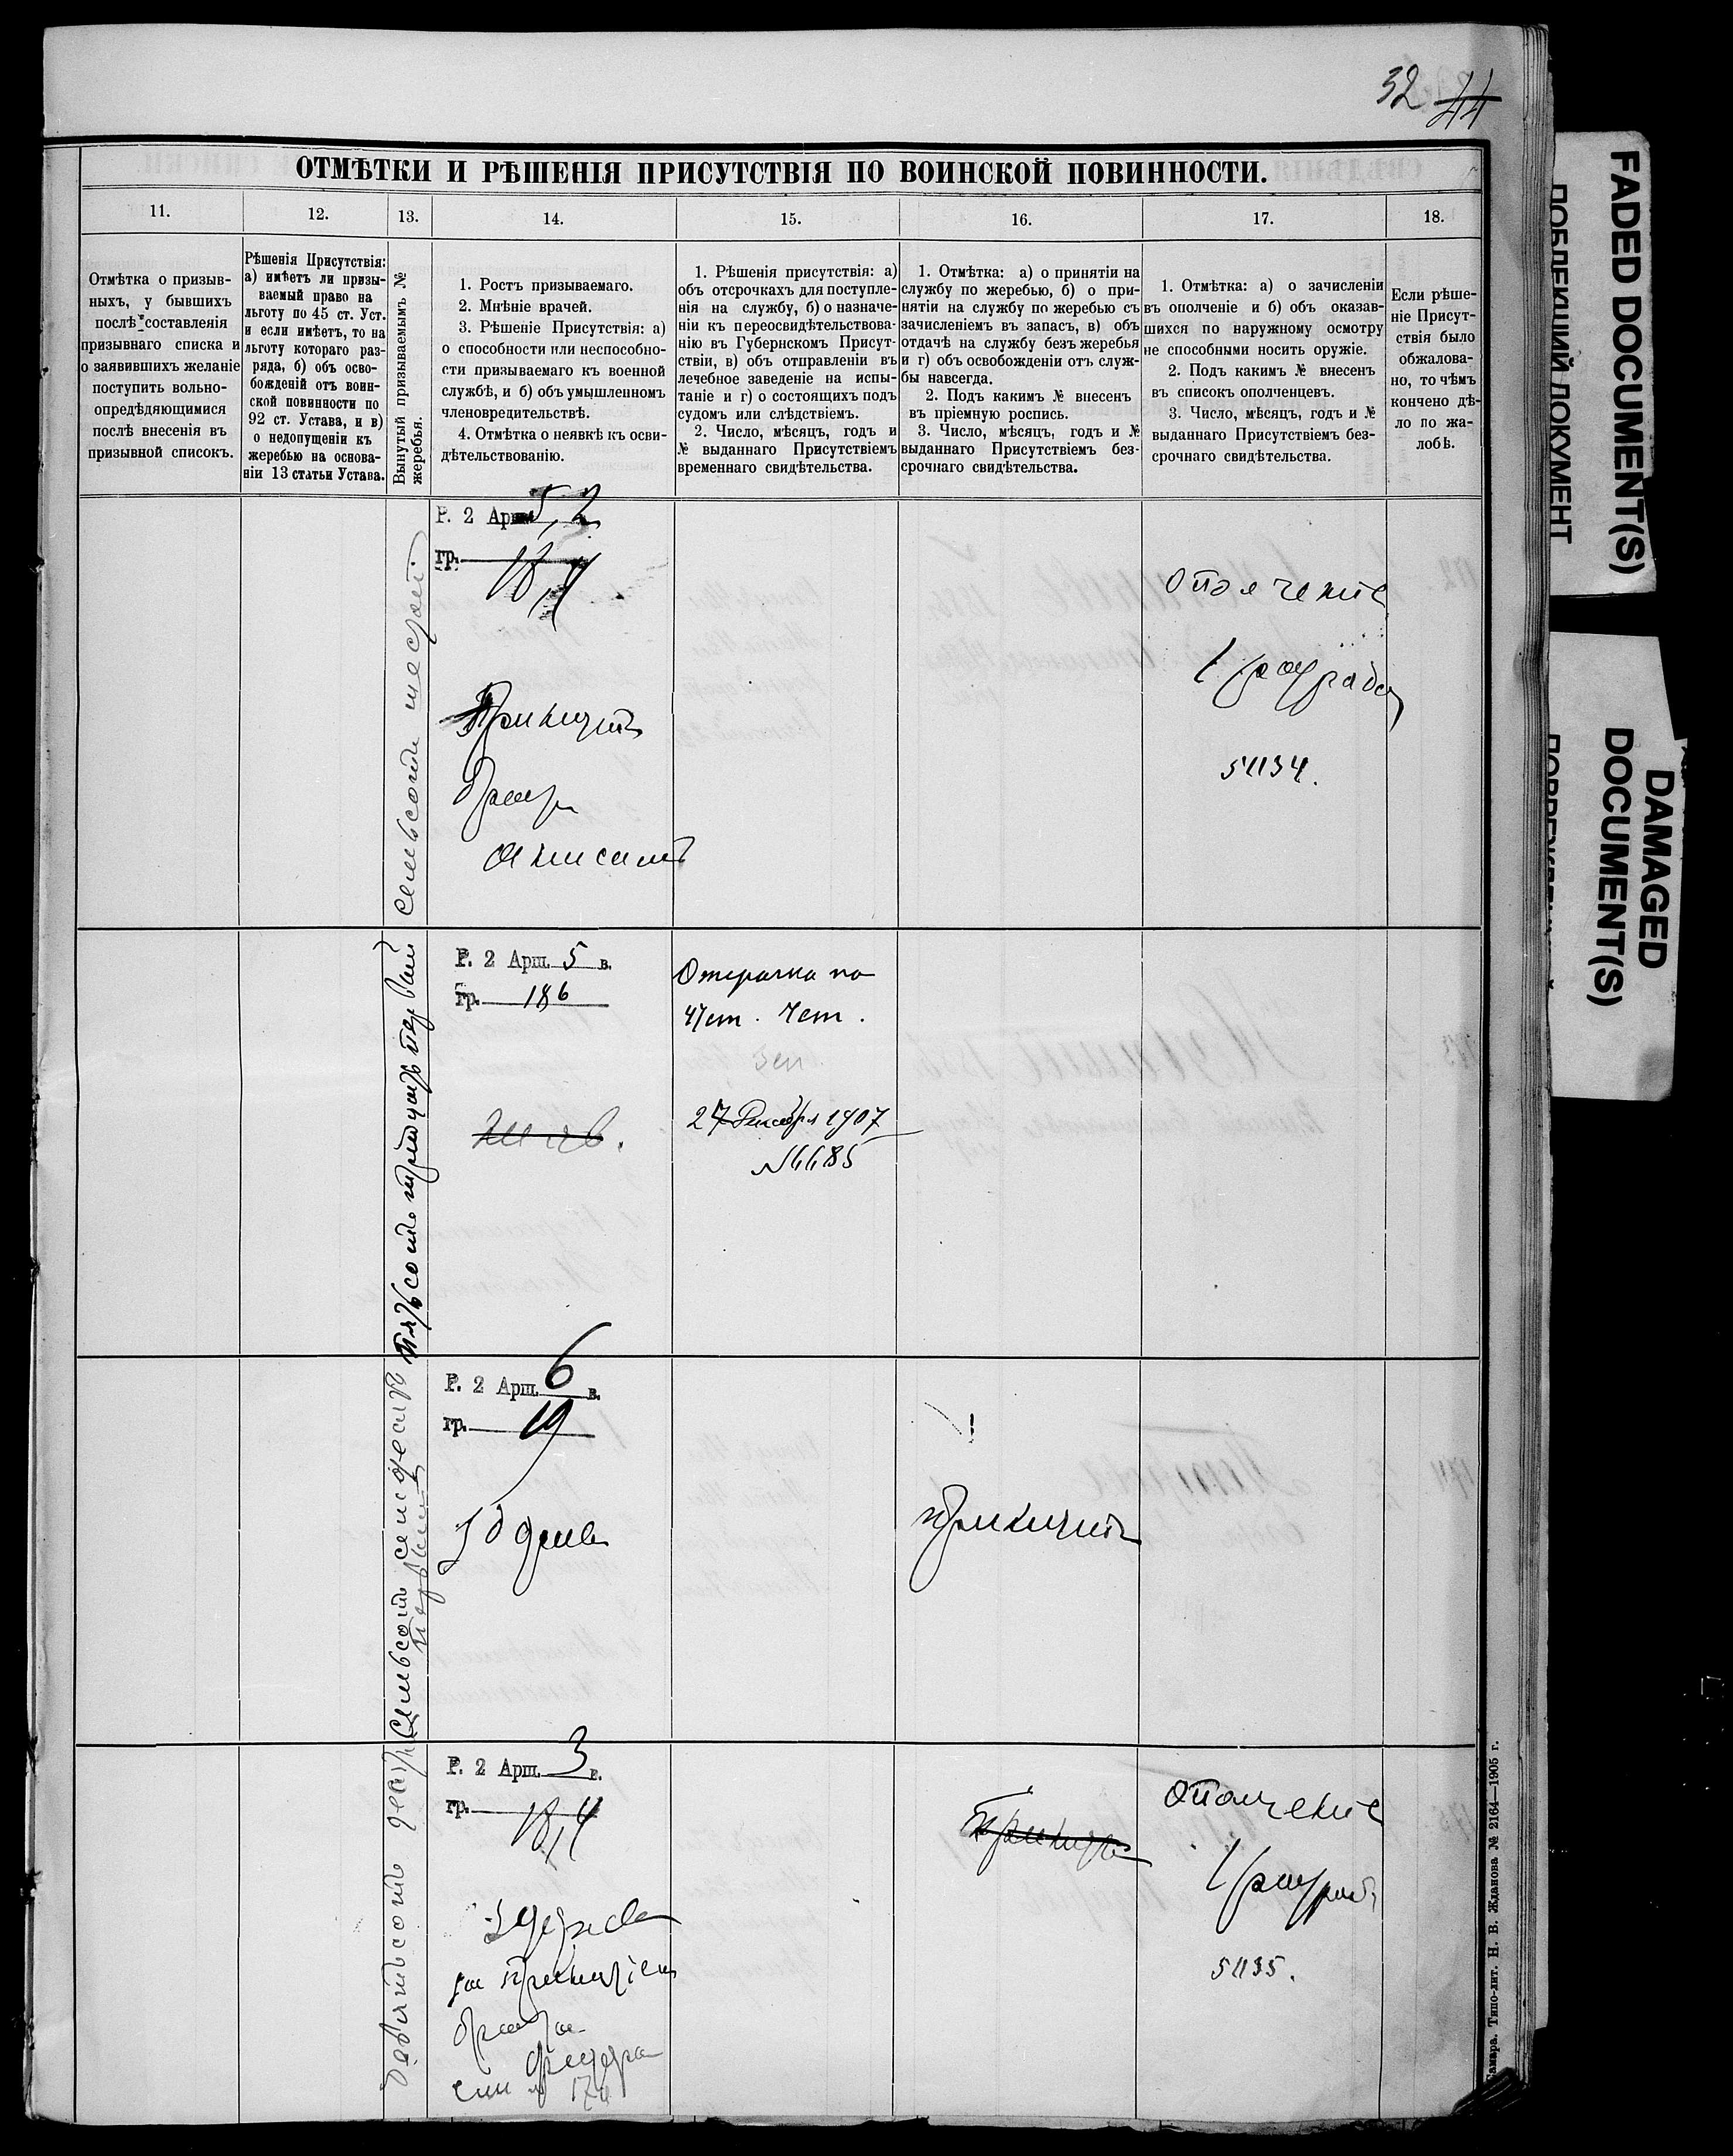 32 44
ОТМѢТКИ И РѢШЕНІЯ ПРИСУТСТВІЯ ПО ВОИНСКОЙ ПОВИННОСТИ.
11.
12.
13.
14.
15.
16.
17.
18.
Отмѣтка о призыв-
ныхъ, у бывшихъ
послѣ составленія
призывнаго списка и
о заявившихъ желаніе
поступить вольно-
опредѣдяющимися
послѣ внесенія въ
призывной списокъ.
Рѣшенія Присутствія:
а) имѣетъ ли призы-
ваемый право на
льготу по 45 ст. Уст.
и если имѣетъ, то на
льготу котораго раз-
ряда, б) объ осво-
божденій отъ воин-
ской повинности по
92 ст. Устава, и в)
о недопущеніи къ
жеребью на основа-
ніи 13 статьи Устава.
Вынутый призываемымъ №
жеребья.
1. Ростъ призываемаго.
2. Мнѣніе врачей.
3. Рѣшеніе Присутствія: а)
о способности или неспособно-
сти призываемаго къ военной
службѣ, и б) объ умышленномъ
членовредительствѣ.
4. Отмѣтка о неявкѣ къ осви-
дѣтельствованію.
1. Рѣшенія присутствія: а)
объ отсрочкахъ для поступле-
нія на службу, б) о назначе-
ніи къ переосвидѣтельствова-
нію въ Губернскомъ Присут-
ствіи, в) объ отправленіи въ
лечебное заведеніе на испы-
таніе и г) о состоящихъ подъ
судомъ или слѣдствіемъ.
2. Число, мѣсяцъ, годъ и
№ выданнаго Присутствіемъ
временнаго свидѣтельства.
1. Отмѣтка: а) о принятіи на
службу по жеребью, б) о при-
нятіи на службу по жеребью съ
зачисленіемъ въ запасъ, в) объ
отдачѣ на службу безъ жеребья
и г) объ освобожденіи отъ служ-
бы навсегда.
2. Подъ какимъ № внесенъ
въ пріемную роспись.
3. Число, мѣсяцъ, годъ и №
выданнаго Присутствіемъ без-
срочнаго свидѣтельства.
1. Отмѣтка: а) о зачисленіи
въ ополченіе и б) объ оказав-
шихся по наружному осмотру
не способными носить оружіе.
2. Подъ какимъ № внесенъ
въ списокъ ополченцевъ.
3. Число, мѣсяцъ, годъ и №
выданнаго Присутствіемъ без-
срочнаго свидѣтельства.
Если рѣше-
ніе Присут-
ствія было
обжалова-
но, то чѣмъ
кончено дѣ-
ло по жа-
лобѣ.
семьсотъ шестой
Р. 2 Арш. 5,2
гр. 18,4
Принятъ
братъ
Ополченіе
1 разряда
51134.
Пятьсотъ тридцать первый
Р. 2 Арш. 5 в.
гр. 18 6
Отсрочка по
47 ст. Уст.
27 Декабря 1907
№ 6685
Семьсотъ семьдесятъ
первый
Р. 2 Арш. 6 в.
гр. 19
Годенъ
принятъ
Девятьсотъ
Р. 2 Арш. 3 в.
гр. 18,4
за принятіемъ
брата
Федора
Принятъ
Ополченіе
1 разряд.
51135.
Самара. Типо-лит. Н. В. Жданова № 2164—1905 г.
FADED DOCUMENT(S)
ПОБЛЕКШИЙ ДОКУМЕНТ
DAMAGED
DOCUMENT(S)